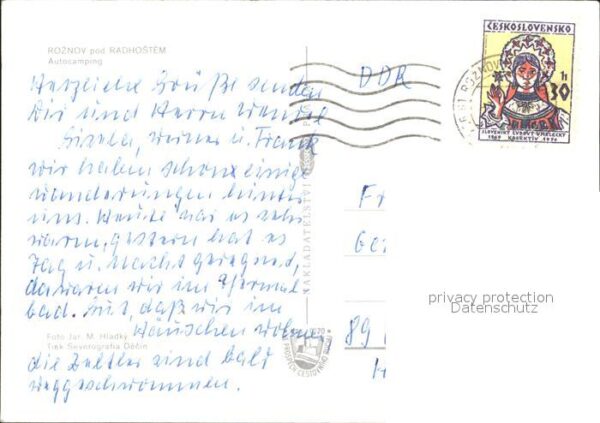 ROŽNOV pod RADHOŠTĚM
Autocamping
Herzliche Grüße senden
Dir und Herrn
Gisela, Werner u. Frank
wir haben schon einige
Wanderungen hinter
uns. Heute war es sehr
warm, gestern hat es
Tag u. Nacht geregnet,
da waren wir im Thermal
bad. Gut, daß wir im
Häuschen wohnen
die Zeltler sind bald
weggeschwommen.
Foto Jar. M. Hladký
Tisk Severografia Děčín
NAKLADATELSTVÍ
ČESKOSLOVENSKO
30 h
SLOVENSKÝ ĽUDOVÝ UMELECKÝ
KOLEKTÍV
DDR
Fr
Ger
89
privacy protection
Datenschutz